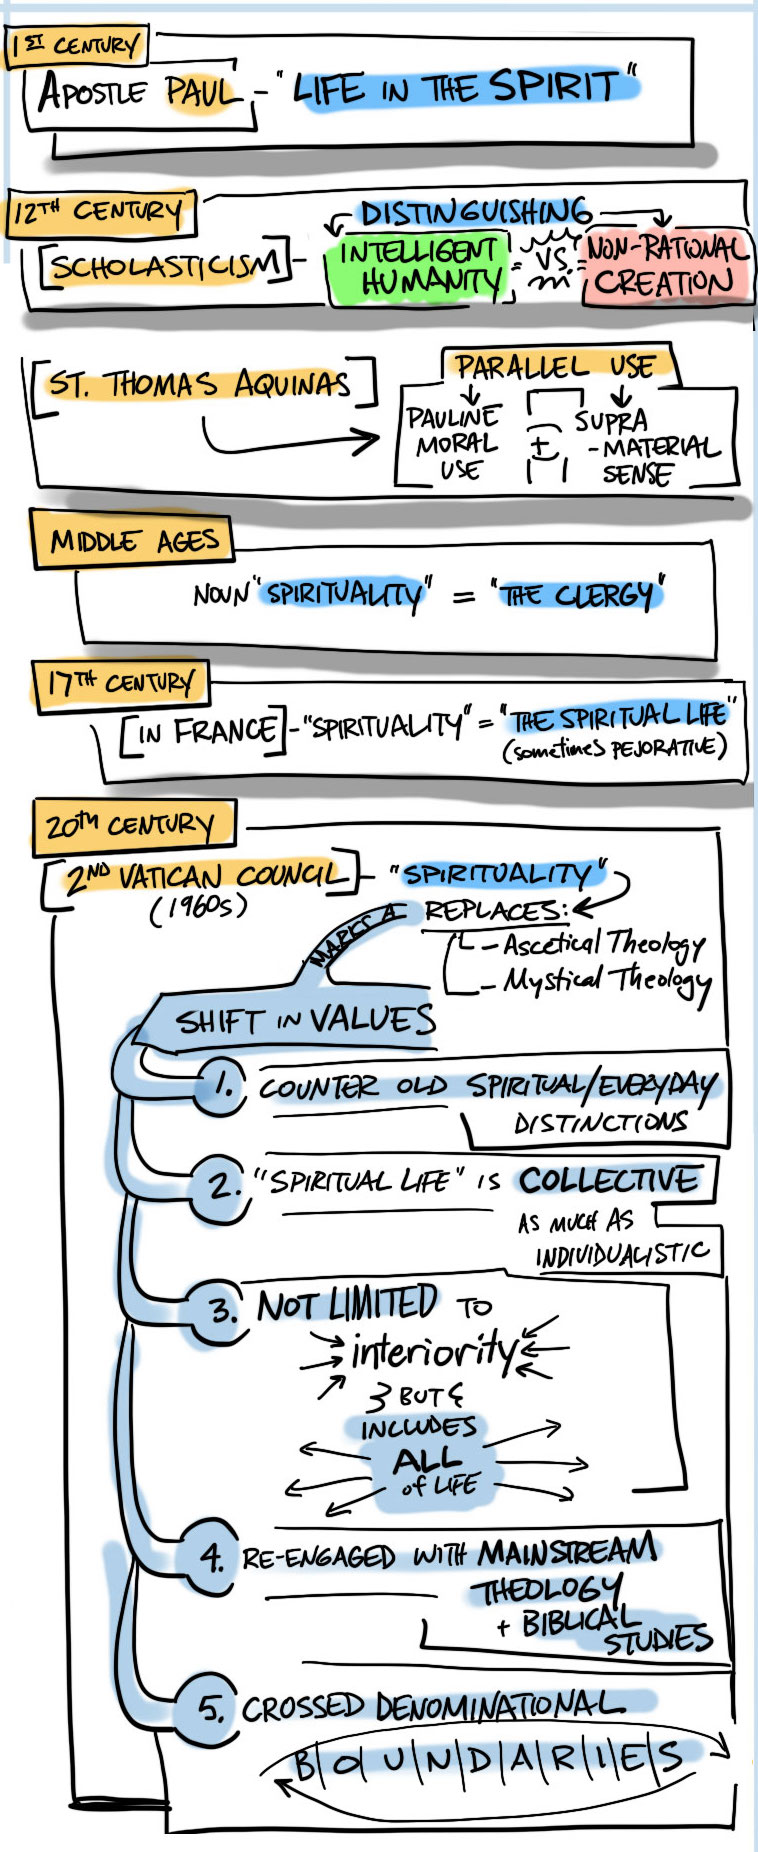 1ST CENTURY
APOSTLE PAUL - "LIFE IN THE SPIRIT"
12TH CENTURY
DISTINGUISHING
[SCHOLASTICISM] -
INTELLIGENT
HUMANITY
VS.
NON-RATIONAL
CREATION
[ST. THOMAS AQUINAS]
PARALLEL USE
PAULINE
MORAL
USE
+
SUPRA
-MATERIAL
SENSE
MIDDLE AGES
NOUN "SPIRITUALITY" = "THE CLERGY"
17TH CENTURY
[IN FRANCE] - "SPIRITUALITY" = "THE SPIRITUAL LIFE"
(sometimes PEJORATIVE)
20TH CENTURY
[2ND VATICAN COUNCIL] - "SPIRITUALITY"
(1960s)
REPLACES:
- Ascetical Theology
- Mystical Theology
MARKS A
SHIFT IN VALUES
1. COUNTER OLD SPIRITUAL/EVERYDAY
DISTINCTIONS
2. "SPIRITUAL LIFE" IS COLLECTIVE
AS MUCH AS
INDIVIDUALISTIC
3. NOT LIMITED TO
interiority
BUT
INCLUDES
ALL
of LIFE
4. RE-ENGAGED WITH MAINSTREAM
THEOLOGY
+ BIBLICAL
STUDIES
5. CROSSED DENOMINATIONAL
B|O|U|N|D|A|R|I|E|S